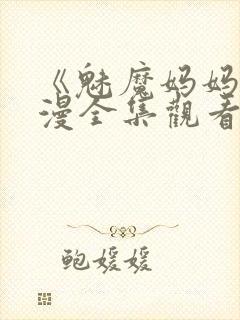 《魅魔妈妈
漫全集觀看
鲍媛媛